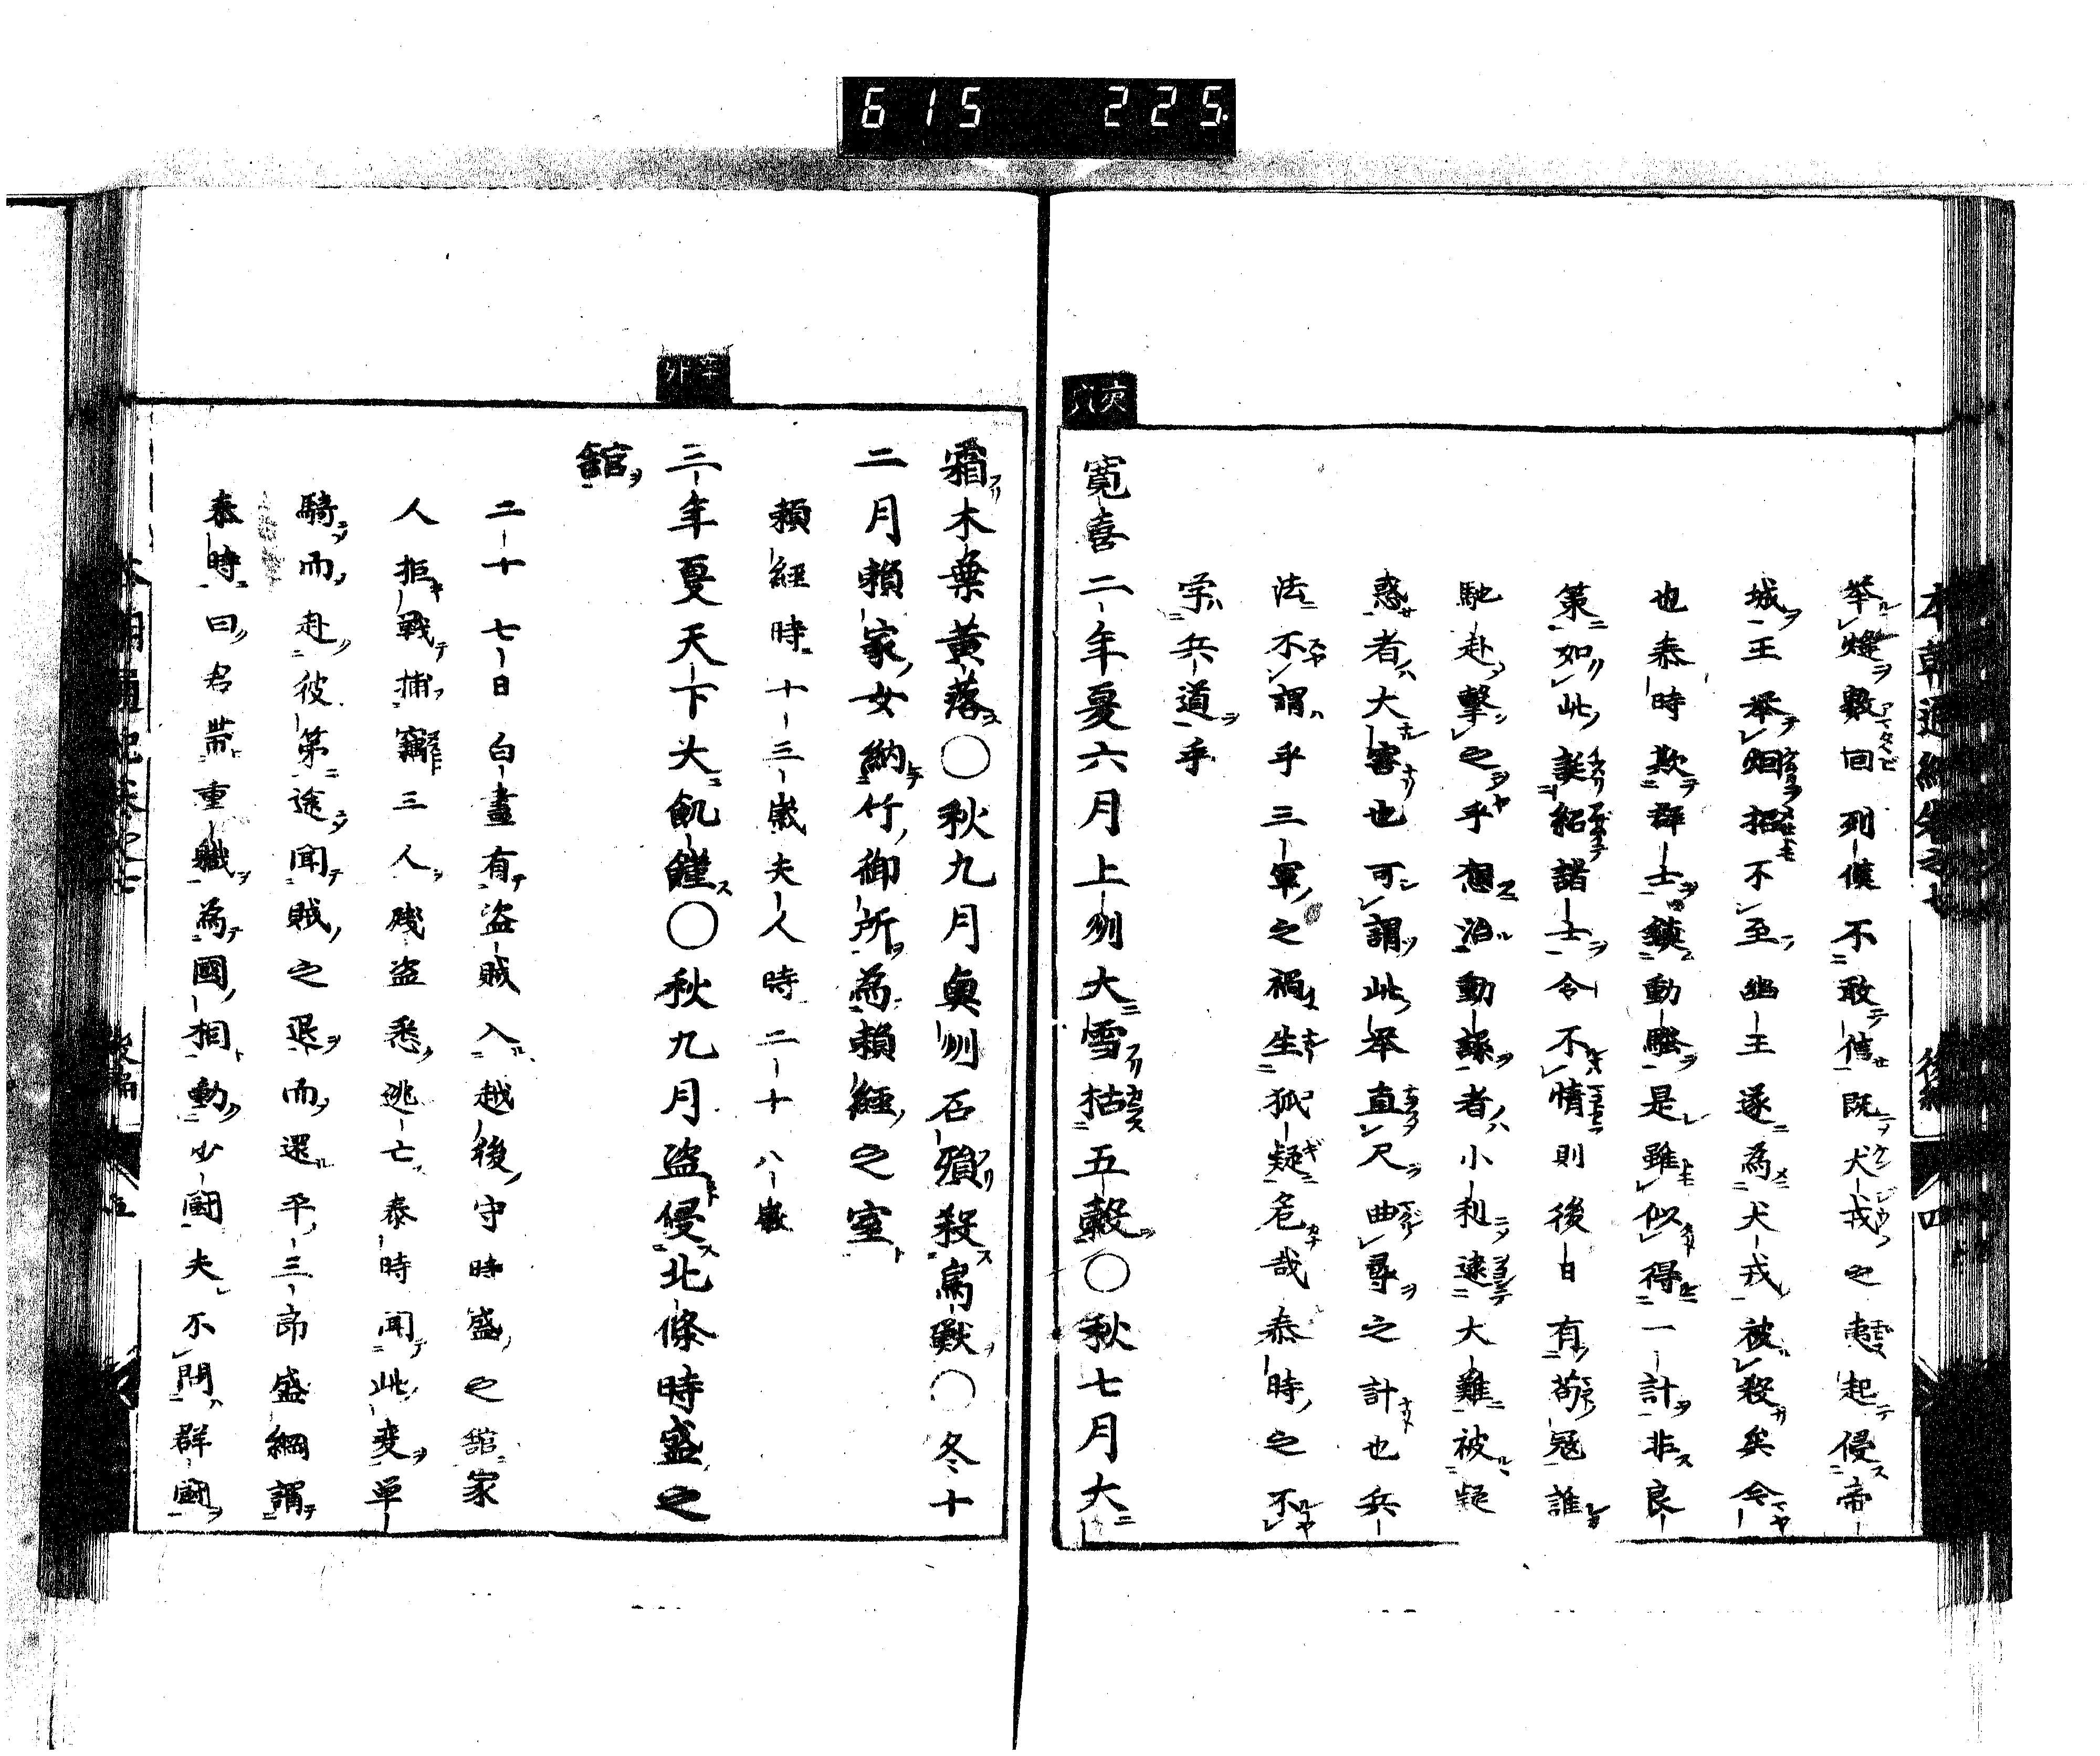 615 225
本朝通紀卷之七 後編 四
挙燧數回列侯不敢信既犬戎之寇起侵帝
城王挙烟招不至幽王遂為犬戎被殺矣今
也泰時欺群士鎮動騒是雖似得一計非良
策如此誕紹諸士令不情則後日有苟冦誰
馳赴擊之乎想治動謀者小利逮大難被疑
惑者大害也可謂此挙直尺曲尋之計也兵
法不謂乎三軍之禍生狐疑危哉泰時之不
学兵道乎
寅
寛喜二年夏六月上刕大雪枯五穀○秋七月大
霜木葉黄落○秋九月奥刕石殞殺鳥獣○冬十
二月頼家女納竹御所為頼經之室
頼經時十三歲夫人時二十八歲
辛卯
三年夏天下大飢饉○秋九月盗侵北條時盛之
館
二十七日白晝有盗賊入越後守時盛之館家
人拒戰捕竊三人殘盗悉逃亡泰時聞此変単
騎而赴彼第途聞賊之退而還平三郎盛綱謂
泰時曰君帯重職為國相動少鬪夫不問群鬪
後編 五